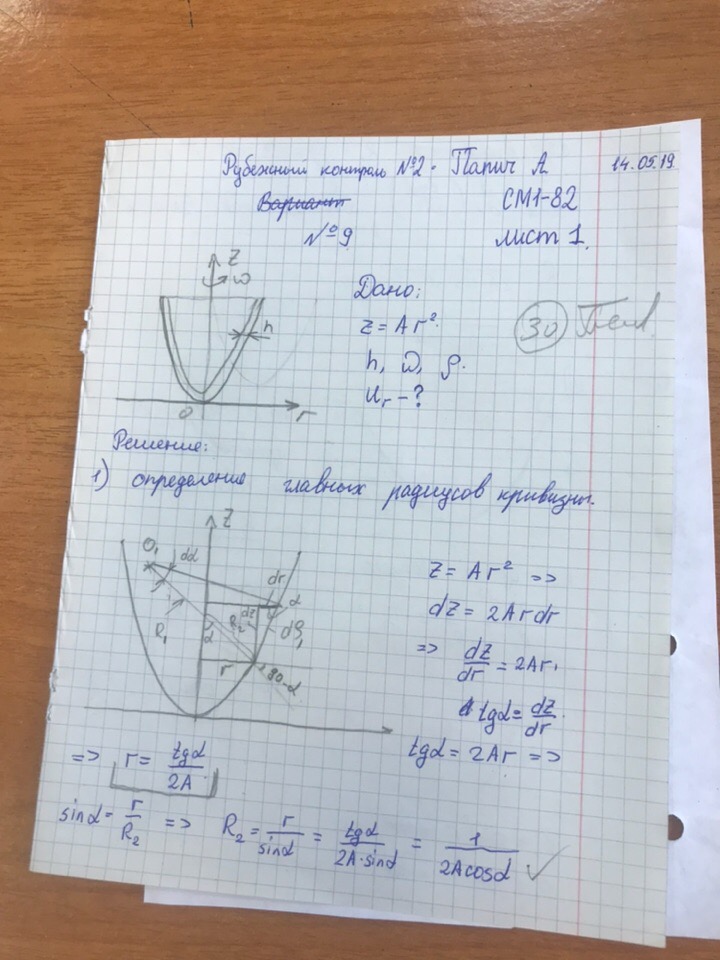 Рубежный контроль №2. Папич А. 14.05.19
Вариант СМ1-82
№9 лист 1.
z
ω
h
0
r
Дано:
z = Ar²
h, ω, ρ.
Ur - ?
30
Решение:
1) определение главных радиусов кривизны.
z
O₁
dα
dr
α
dz
R₁
R₂
α
dS₁
r
90-α
z = Ar² =>
dz = 2Ardr
=> dz/dr = 2Ar.
tgα = dz/dr
tgα = 2Ar =>
=> r = tgα/2A
sinα = r/R₂ => R₂ = r/sinα = tgα/2A·sinα = 1/2Acosα